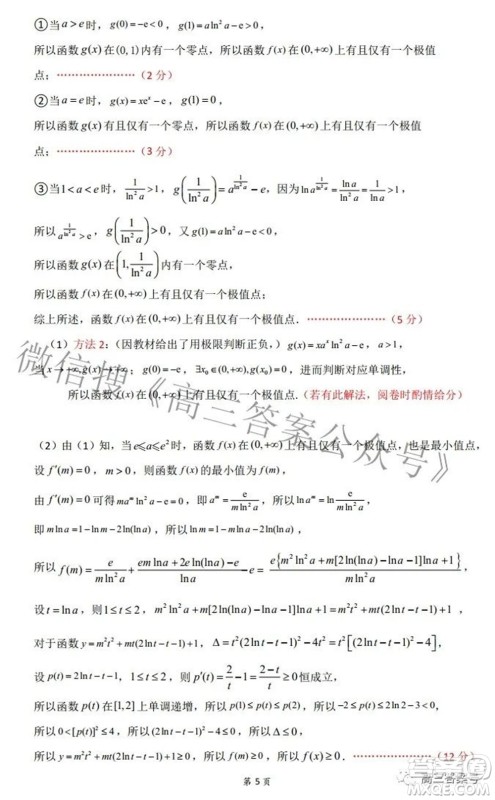 ①当 a > e 时，g(0) = −e < 0，g(1) = a ln² a − e > 0，
所以函数 g(x) 在 (0,1) 内有一个零点，所以函数 f(x) 在 (0,+∞) 上有且仅有一个极值
点；…………………（2 分）
②当 a = e 时，g(x) = xeˣ − e，g(1) = 0，
所以函数 g(x) 有且仅有一个零点，所以函数 f(x) 在 (0,+∞) 上有且仅有一个极值
点；…………………（3 分）
③当 1 < a < e 时，1/ln² a > 1，g(1/ln² a) = a^(1/ln² a) − e，因为 ln a^(1/ln² a) = ln a/ln² a = 1/ln a > 1，
所以 a^(1/ln² a) > e，g(1/ln² a) > 0，又 g(1) = a ln² a − e < 0，
所以函数 g(x) 在 (1, 1/ln² a) 内有一个零点，
所以函数 f(x) 在 (0,+∞) 上有且仅有一个极值点；
综上所述，函数 f(x) 在 (0,+∞) 上有且仅有一个极值点．…………………（5 分）
（1）方法 2：（因教材给出了用极限判断正负，）g(x) = xaˣ ln² a − e，a > 1，
当 x → +∞, g(x) → +∞；g(0) = −e，∃x₀ ∈ (0,+∞), g(x₀) = 0，进而判断对应单调性，
所以函数 f(x) 在 (0,+∞) 上有且仅有一个极值点．（若有此解法，阅卷时酌情给分）
（2）由（1）知，当 e ≤ a ≤ e² 时，函数 f(x) 在 (0,+∞) 上有且仅有一个极值点，也是最小值点，
设 f′(m) = 0，m > 0，则函数 f(x) 的最小值为 f(m)，
由 f′(m) = 0 可得 maᵐ ln² a − e = 0，即 aᵐ = e/(m ln² a)，所以 ln aᵐ = ln e/(m ln² a)，
即 m ln a = 1 − ln m − 2 ln(ln a)，所以 ln m = 1 − m ln a − 2 ln(ln a)，
所以 f(m) = e/(m ln² a) + (em ln a + 2e ln(ln a) − e)/ln a − e = e{m² ln² a + m[2 ln(ln a) − ln a − 1] ln a + 1}/(m ln² a)
设 t = ln a，则 1 ≤ t ≤ 2，m² ln² a + m[2 ln(ln a) − ln a − 1] ln a + 1 = m²t² + mt(2 ln t − t − 1) + 1，
对于函数 y = m²t² + mt(2 ln t − t − 1) + 1，Δ = t²(2 ln t − t − 1)² − 4t² = t²[(2 ln t − t − 1)² − 4]，
设 p(t) = 2 ln t − t − 1，1 ≤ t ≤ 2，则 p′(t) = 2/t − 1 = (2 − t)/t ≥ 0 恒成立，
所以函数 p(t) 在 [1,2] 上单调递增，所以 p(1) ≤ p(t) ≤ p(2)，所以 −2 ≤ p(t) ≤ 2 ln 2 − 3 < 0，
所以 0 < [p(t)]² ≤ 4，所以 Δ = t²[(2 ln t − t − 1)² − 4] ≤ 0，
所以 y = m²t² + mt(2 ln t − t − 1) + 1 ≥ 0，所以 f(x) ≥ 0．…………………（12 分）
第 5 页
微信搜《高三答案公众号》
高三答案号
答案圈
MXQE.COM